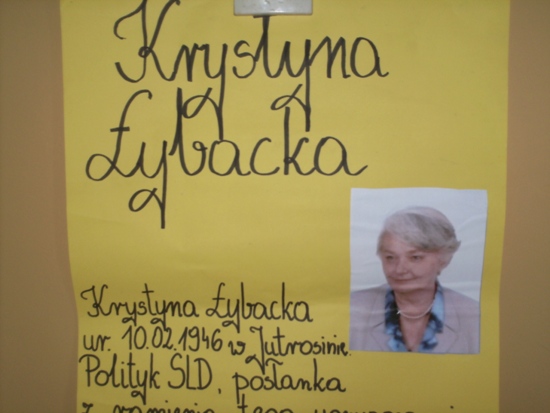 Krystyna
Łybacka
Krystyna Łybacka
ur. 10.02.1946 w Jutrosinie.
Polityk SLD, posłanka
z ramienia tego